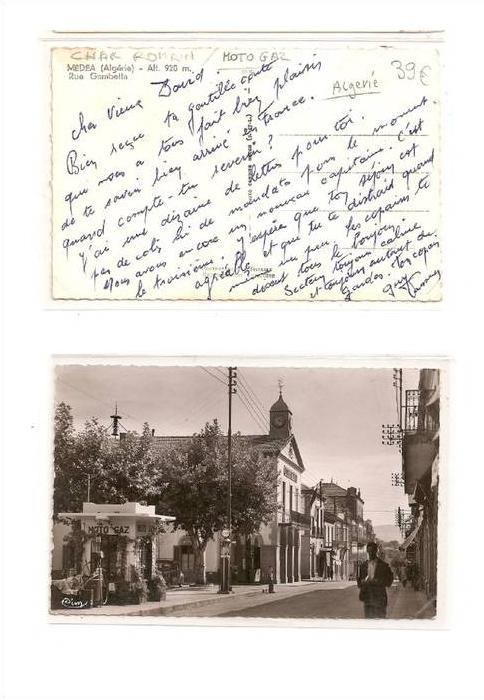 CHAR ROMAIN / MOTO GAZ
MEDEA (Algérie) - Alt. 920 m.
Rue Gambetta
Algerié
39€
Cher Vieux David
Bien reçue ta gentille carte
que nous a tous fait bien plaisir
de te savoir bien arrivé en France.
quand compte-tu revenir?
J'ai une dizaine de lettres pour toi.
pas de colis ni de mandats pour le moment.
Nous avons encore un nouveau capitaine. C'est
le troisième. J'espère que ton séjour est
agréable et que tu te distrait quand
même un peu. Les copains te
disent tous le toujours.
Secteur toujours calme
et toujours autant de
gardes. Ton copain
Guy
MOTO GAZ
Cim